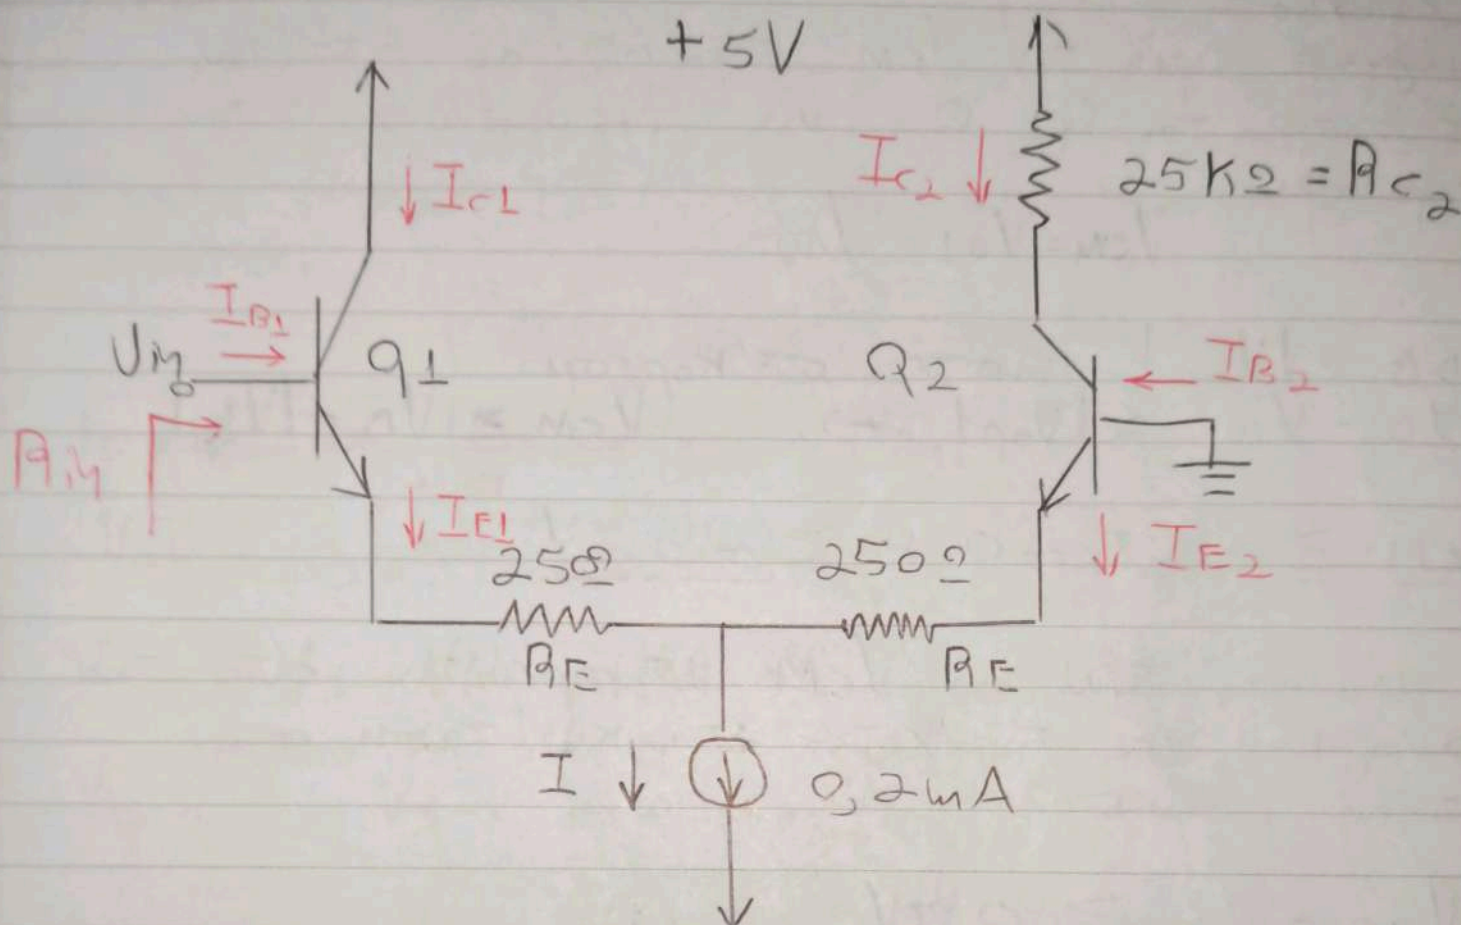 +5V
IC1
IC2
25KΩ = RC2
IB1
Vin
Q1
Q2
IB2
Rin
IE1
250Ω
250Ω
IE2
RE
RE
I
0,2mA